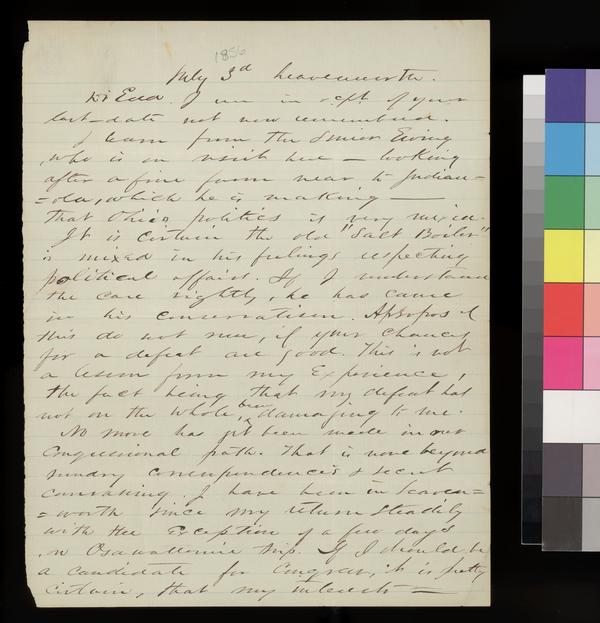 1856
July 3d Leavenworth.
Dr Eud. I am in rcpt of your
last – date not now remembered.
I learn from the Senior Ewing
, who is on visit here – looking
after a fine farm near to Indian=
=ola, which he is making —
that Ohio politics is very mixed.
It is certain the old "Salt Boiler"
is mixed in his feelings respecting
political affairs. If I understand
the case rightly, he has cause
in his conservatism. Apropos of
this do not run, if your chances
for a defeat are good. This is not
a lesson from my Experience,
the fact being that my defeat has
not on the whole, been damaging to me.
No move has yet been made in our
Congressional path. That is none beyond
sundry correspondences & secret
canvassing. I have been in Leaven=
=worth since my return steadily
with the Exception of a few days
in Osawattomie trip. If I should be
a candidate for Congress, it is pretty
certain, that my interests —